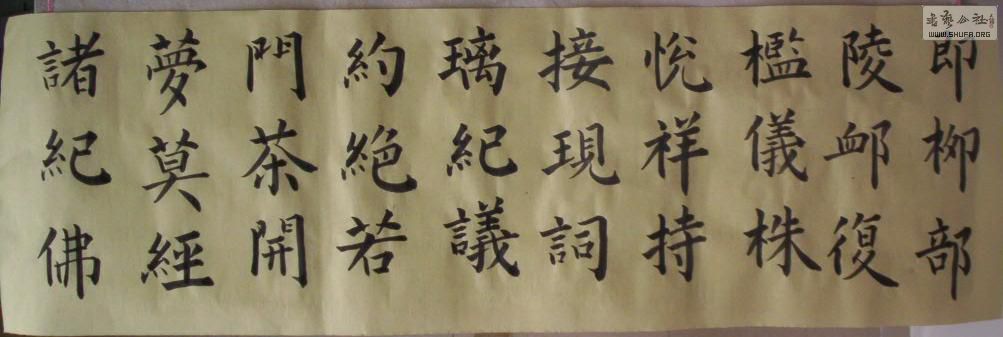 即柳部
陵卹復
檻儀株
悦祥持
接現詞
璃紀議
約絕若
門茶開
夢莫經
諸紀佛
书艺公社
WWW.SHUFA.ORG